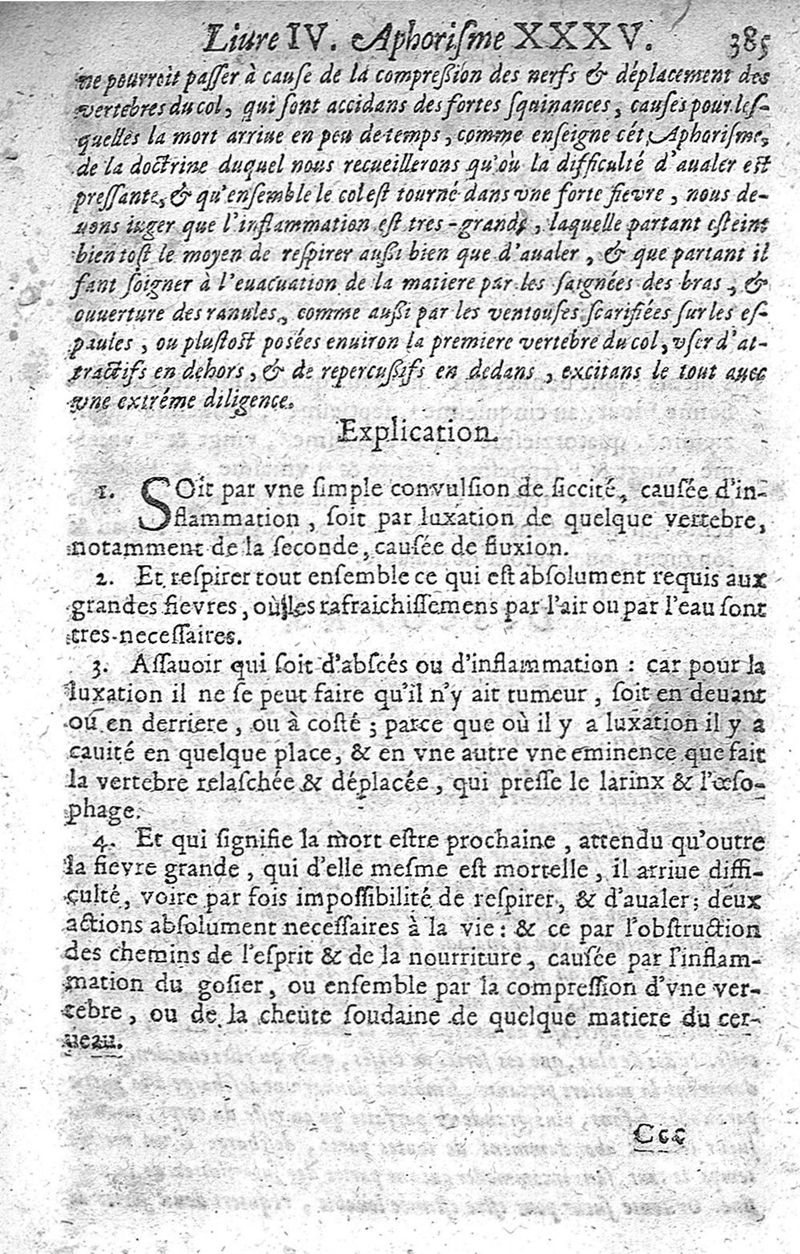 Liure IV. Aphoriſme XXXV. 385
ne pourroit paſſer à cauſe de la compreßion des nerfs & déplacement des
vertebres du col, qui ſont accidans des fortes ſquinances, cauſes pour leſ-
quelles la mort arriue en peu de temps, comme enſeigne cét Aphoriſme,
de la doctrine duquel nous recueillerons qu'où la difficulté d'aualer eſt
preſſante, & qu'enſemble le col eſt tourné dans vne forte fievre, nous de-
uons iuger que l'inflammation eſt tres-grande, laquelle partant eſteint
bien toſt le moyen de reſpirer außi bien que d'aualer, & que partant il
faut ſoigner à l'euacuation de la matiere par les ſaignées des bras, &
ouuerture des ranules, comme außi par les ventouſes ſcarifiées ſur les eſ-
paules, ou pluſtoſt poſées enuiron la premiere vertebre du col, vſer d'at-
tractifs en dehors, & de repercußifs en dedans, excitans le tout auec
vne extréme diligence.
Explication.
1. SOit par vne ſimple convulſion de ſiccité, cauſée d'in-
flammation, ſoit par luxation de quelque vertebre,
notamment de la ſeconde, cauſée de fluxion.
2. Et reſpirer tout enſemble ce qui eſt abſolument requis aux
grandes fievres, où les rafraichiſſemens par l'air ou par l'eau ſont
tres-neceſſaires.
3. Aſſauoir qui ſoit d'abſcés ou d'inflammation : car pour la
luxation il ne ſe peut faire qu'il n'y ait tumeur, ſoit en deuant
ou en derriere, ou à coſté ; parce que où il y a luxation il y a
cauité en quelque place, & en vne autre vne eminence que fait
la vertebre relaſchée & déplacée, qui preſſe le larinx & l'œſo-
phage.
4. Et qui ſignifie la mort eſtre prochaine, attendu qu'outre
la fievre grande, qui d'elle meſme eſt mortelle, il arriue diffi-
culté, voire par fois impoſſibilité de reſpirer, & d'aualer; deux
actions abſolument neceſſaires à la vie : & ce par l'obſtruction
des chemins de l'eſprit & de la nourriture, cauſée par l'inflam-
mation du goſier, ou enſemble par la compreſſion d'vne ver-
tebre, ou de la cheûte ſoudaine de quelque matiere du cer-
ueau.
Ccc